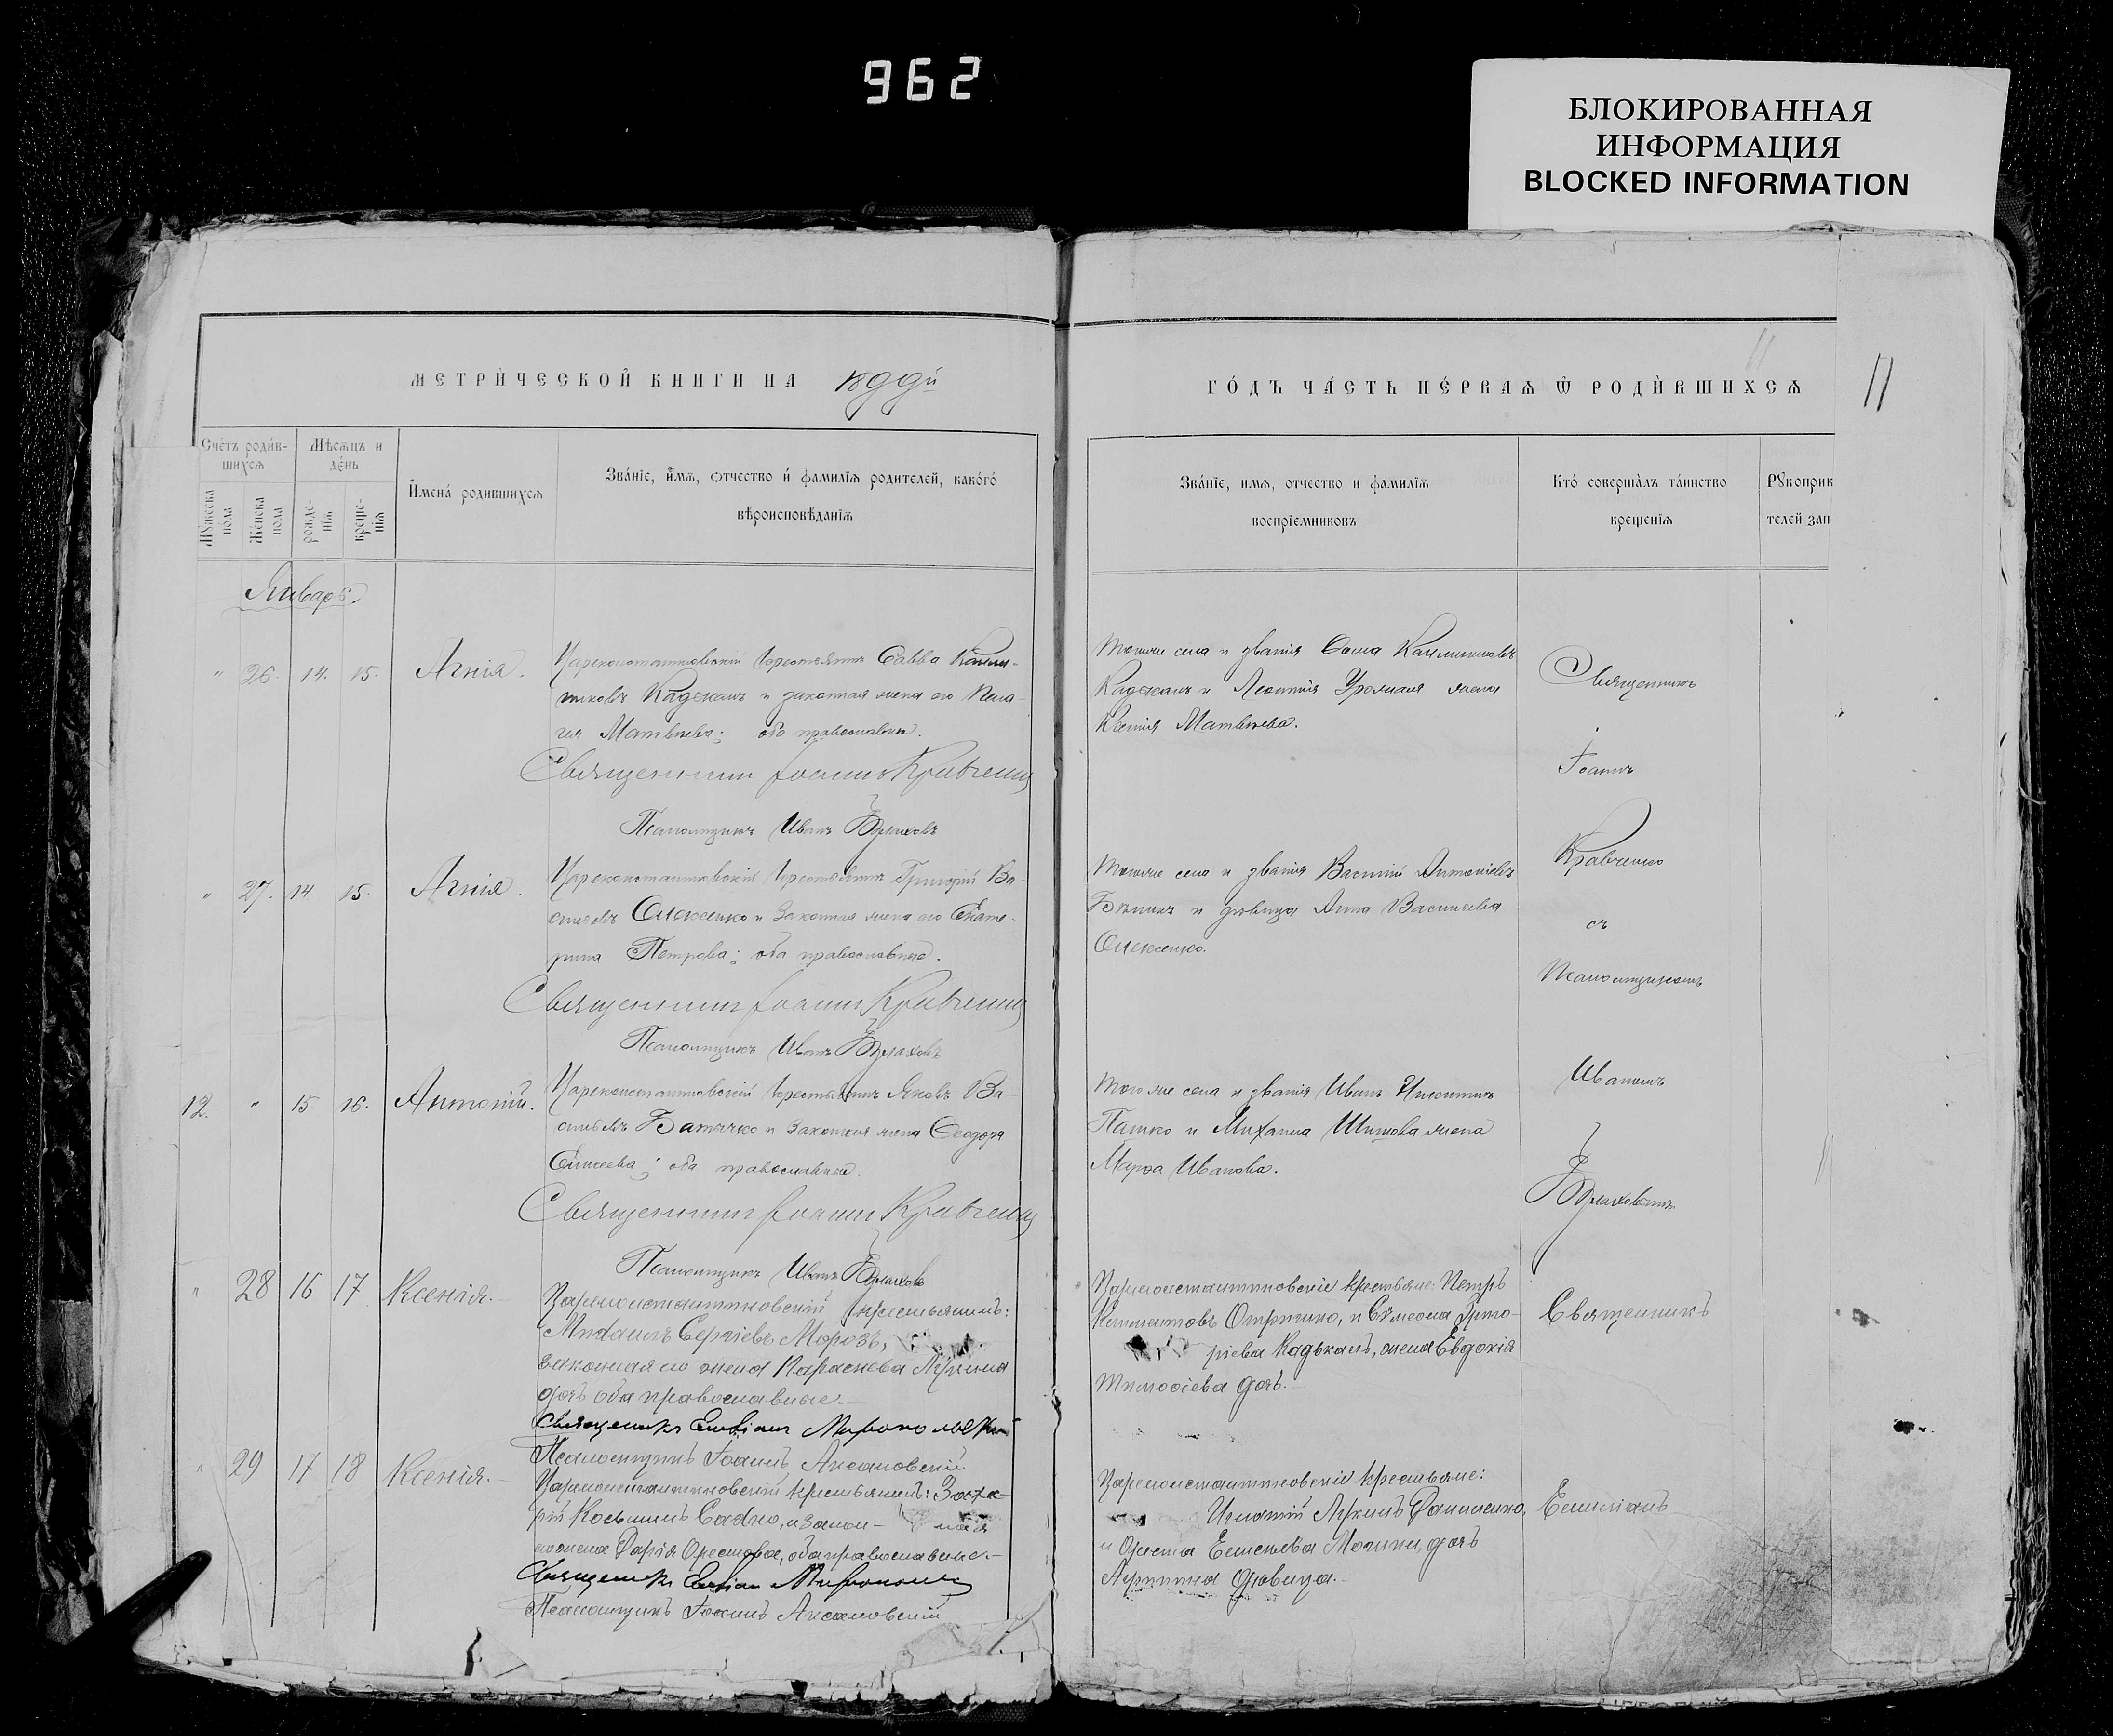 962
БЛОКИРОВАННАЯ
ИНФОРМАЦИЯ
BLOCKED INFORMATION
МЕТРИ́ЧЕСКОЙ КНИГИ НА
ГО́ДЪ ЧА́СТЬ ПЕ́РВАѦ Ѿ РОДИ́ВШИХСѦ
11
Счётъ роди́в-
шихсѧ
Мѣсѧцъ и
де́нь
Мꙋжеска
по́ла
Же́нска
пола
рожде-
нїѧ
креще-
нїѧ
И҆мена́ родившихсѧ
Зва́нїе, и҆́мѧ, ѻтчество и҆ фамилїѧ родителей, како́го
вѣроисповѣданїѧ
Зва́нїе, имѧ, отчество и фамилїѧ
воспрїемниковъ
Кто́ соверша́лъ та́инство
крещенїѧ
Рꙋкоприк
телей зап
Январь
" 26. 14. 15. Агнія.
Цареконстантиновскій крестьянинъ Савва Калли-
никовъ Кадькалъ и законная жена его Пела-
гія Матвѣева; оба православные.
Священникъ Іоаннъ Кравченко
Псаломщикъ Иванъ
Тогоже села и званія Каллиниковъ
Кадькалъ и Леонтія жена
Ксенія Матвѣева.
Священникъ
Іоаннъ
Кравченко
съ
Псаломщикомъ
Иваномъ
" 27. 14 15. Агнія.
Цареконстантиновскій крестьянинъ Григорій Ва-
сильевъ Олексенко и законная жена его Екате-
рина Петрова; оба православные.
Священникъ Іоаннъ Кравченко
Псаломщикъ Иванъ
Тогоже села и званія Василій Антоніевъ
и дѣвица Анна Васильева
Олексенко.
12. " 15. 16. Антоній.
Цареконстантиновскій крестьянинъ Яковъ Ва-
сильевъ и законная жена Ѳеодора
оба православные.
Священникъ Іоаннъ Кравченко
Псаломщикъ Иванъ
Тогоже села и званія Иванъ Никитинъ
Пашко и Михаила Шишова жена
Марѳа Иванова.
" 28 16 17 Ксенія.
Цареконстантиновскій крестьянинъ:
Михаилъ Сергіевъ Морозъ,
законная его жена Параскева
дочь оба православные.
Священникъ
Псаломщикъ Іоаннъ
Цареконстантиновскіе крестьяне: Петръ
и Сѵмеона Григо-
ріева Кадькалъ, жена Евдокія
Тимоѳіева дочь.
Священникъ
" 29 17 18 Ксенія.
Цареконстантиновскій крестьянинъ: Заха-
рій Косьминъ и закон- ная
его жена Дарія Орестова, оба православные.
Священникъ
Псаломщикъ Іоаннъ
Цареконстантиновскіе крестьяне:
Игнатій Даниленко,
и Ореста дочь
дѣвица.
Емиліанъ